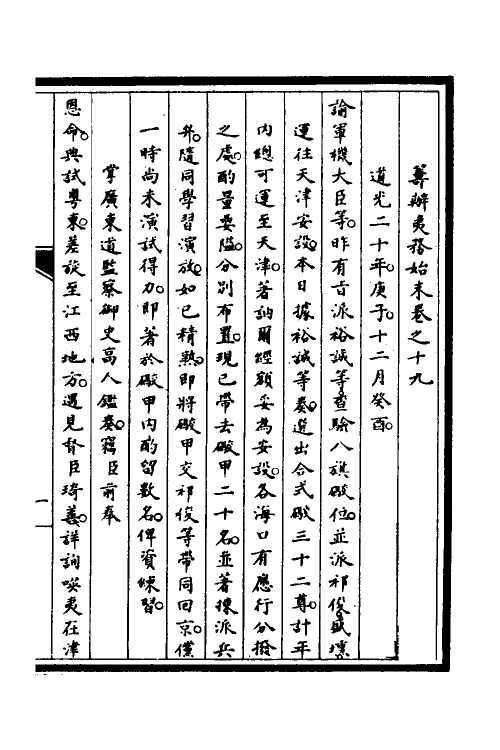 籌辦夷務始末卷之十九
道光二十年。庚子。十二月癸酉。
諭軍機大臣等。昨有旨派裕誠等。查驗八旗礮位。並派祁俊。盛壎
運往天津安設。本日據裕誠等奏。選出合式礮三十二尊。計年
內總可運至天津。著訥爾經額妥為安設。各海口有應行分撥
之處。酌量要隘。分別布置。現已帶去礮甲二十名。並著揀派兵
弁。隨同學習演放。如已精熟。即將礮甲交祁俊等帶同回京。儻
一時尚未演試得力。即著於礮甲內酌留數名。俾資練習。
掌廣東道監察御史高人鑑奏。竊臣前奉
恩命。典試粵東。差旋至江西地方。遇見督臣琦善。詳詢嘆夷在津
一